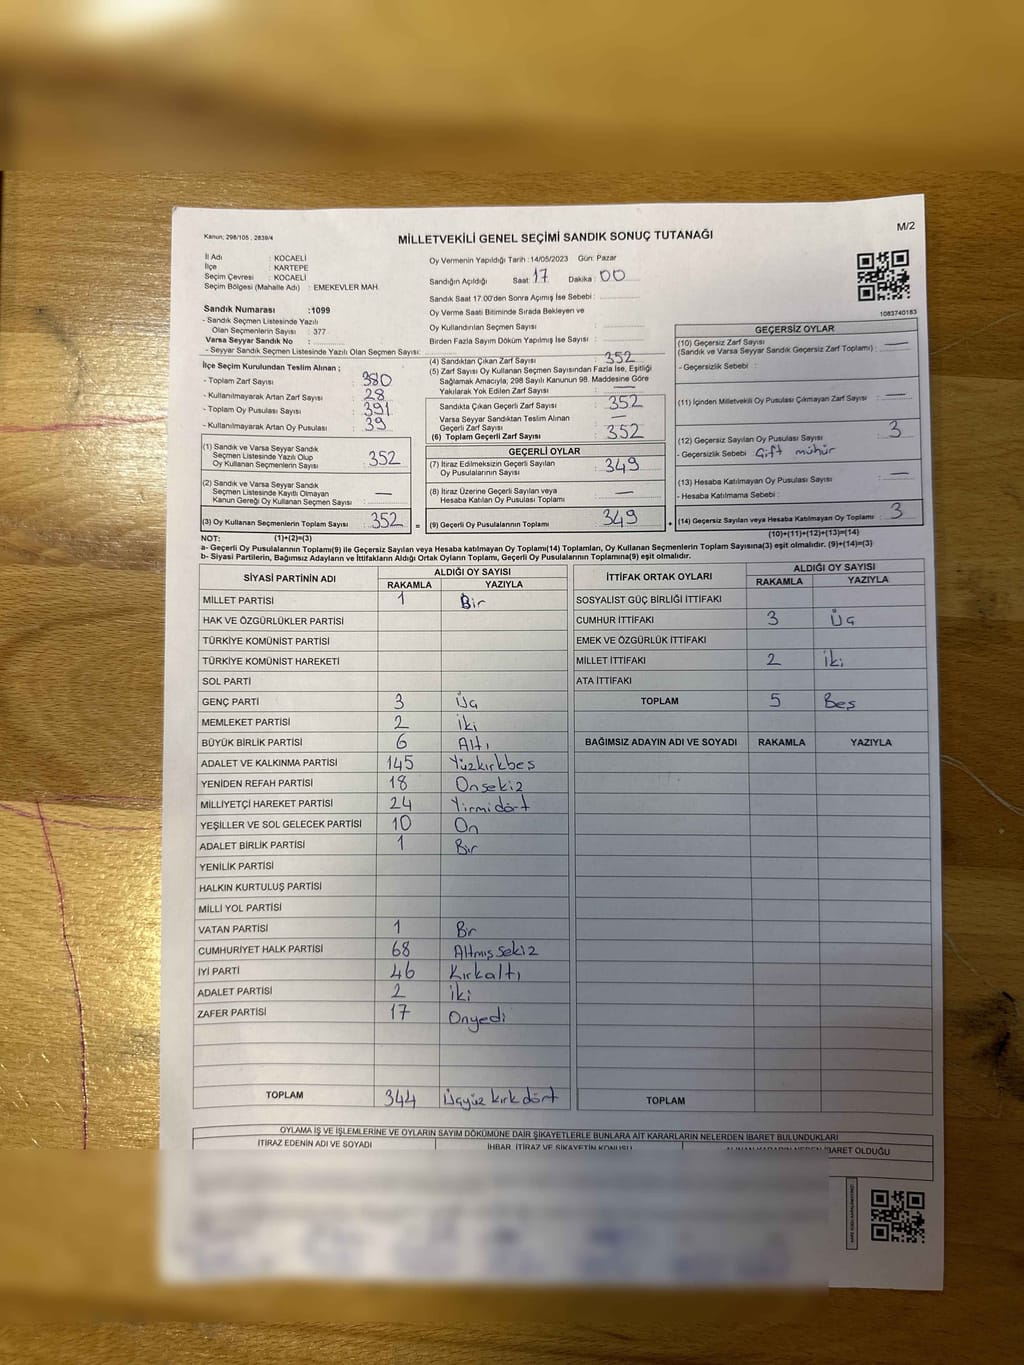 Kanun; 298/105 , 2839/4
MİLLETVEKİLİ GENEL SEÇİMİ SANDIK SONUÇ TUTANAĞI
M/2
İl Adı : KOCAELİ
İlçe : KARTEPE
Seçim Çevresi : KOCAELİ
Seçim Bölgesi (Mahalle Adı) : EMEKEVLER MAH.
Oy Vermenin Yapıldığı Tarih :14/05/2023 Gün: Pazar
Sandığın Açıldığı Saat: 17 Dakika : 00
Sandık Saat 17.00'den Sonra Açımış İse Sebebi :
Oy Verme Saati Bitiminde Sırada Bekleyen ve
Oy Kullandırılan Seçmen Sayısı :
Birden Fazla Sayım Döküm Yapılmış İse Sayısı :
1083740183
Sandık Numarası :1099
- Sandık Seçmen Listesinde Yazılı
Olan Seçmenlerin Sayısı : 377
Varsa Seyyar Sandık No :
- Seyyar Sandık Seçmen Listesinde Yazılı Olan Seçmen Sayısı:
İlçe Seçim Kurulundan Teslim Alınan ;
- Toplam Zarf Sayısı : 380
- Kullanılmayarak Artan Zarf Sayısı : 28
- Toplam Oy Pusulası Sayısı : 391
- Kullanılmayarak Artan Oy Pusulası : 39
(1) Sandık ve Varsa Seyyar Sandık
Seçmen Listesinde Yazılı Olup
Oy Kullanan Seçmenlerin Sayısı : 352
(2) Sandık ve Varsa Seyyar Sandık
Seçmen Listesinde Kayıtlı Olmayan
Kanun Gereği Oy Kullanan Seçmen Sayısı : —
(3) Oy Kullanan Seçmenlerin Toplam Sayısı : 352
(4) Sandıktan Çıkan Zarf Sayısı : 352
(5) Zarf Sayısı Oy Kullanan Seçmen Sayısından Fazla İse, Eşitliği
Sağlamak Amacıyla; 298 Sayılı Kanunun 98. Maddesine Göre
Yakılarak Yok Edilen Zarf Sayısı : —
Sandıkta Çıkan Geçerli Zarf Sayısı : 352
Varsa Seyyar Sandıktan Teslim Alınan
Geçerli Zarf Sayısı : —
(6) Toplam Geçerli Zarf Sayısı : 352
GEÇERLİ OYLAR
(7) İtiraz Edilmeksizin Geçerli Sayılan
Oy Pusulalarının Sayısı : 349
(8) İtiraz Üzerine Geçerli Sayılan veya
Hesaba Katılan Oy Pusulası Toplamı : —
= (9) Geçerli Oy Pusulalarının Toplamı : 349
GEÇERSİZ OYLAR
(10) Geçersiz Zarf Sayısı
(Sandık ve Varsa Seyyar Sandık Geçersiz Zarf Toplamı) : —
- Geçersizlik Sebebi :
(11) İçinden Milletvekili Oy Pusulası Çıkmayan Zarf Sayısı : —
(12) Geçersiz Sayılan Oy Pusulası Sayısı : 3
- Geçersizlik Sebebi : Çift mühür
(13) Hesaba Katılmayan Oy Pusulası Sayısı : —
- Hesaba Katılmama Sebebi :
+ (14) Geçersiz Sayılan veya Hesaba Katılmayan Oy Toplamı : 3
NOT: (1)+(2)=(3)
(10)+(11)+(12)+(13)=(14)
a- Geçerli Oy Pusulalarının Toplamı(9) ile Geçersiz Sayılan veya Hesaba katılmayan Oy Toplamı(14) Toplamları, Oy Kullanan Seçmenlerin Toplam Sayısına(3) eşit olmalıdır. (9)+(14)=(3)
b- Siyasi Partilerin, Bağımsız Adayların ve İttifakların Aldığı Ortak Oyların Toplamı, Geçerli Oy Pusulalarının Toplamına(9) eşit olmalıdır.
SİYASİ PARTİNİN ADI ALDIĞI OY SAYISI
RAKAMLA YAZIYLA
MİLLET PARTİSİ 1 Bir
HAK VE ÖZGÜRLÜKLER PARTİSİ
TÜRKİYE KOMÜNİST PARTİSİ
TÜRKİYE KOMÜNİST HAREKETİ
SOL PARTİ
GENÇ PARTİ 3 Üç
MEMLEKET PARTİSİ 2 İki
BÜYÜK BİRLİK PARTİSİ 6 Altı
ADALET VE KALKINMA PARTİSİ 145 Yüzkırkbeş
YENİDEN REFAH PARTİSİ 18 Onsekiz
MİLLİYETÇİ HAREKET PARTİSİ 24 Yirmidört
YEŞİLLER VE SOL GELECEK PARTİSİ 10 On
ADALET BİRLİK PARTİSİ 1 Bir
YENİLİK PARTİSİ
HALKIN KURTULUŞ PARTİSİ
MİLLİ YOL PARTİSİ
VATAN PARTİSİ 1 Bir
CUMHURİYET HALK PARTİSİ 68 Altmışsekiz
İYİ PARTİ 46 Kırkaltı
ADALET PARTİSİ 2 İki
ZAFER PARTİSİ 17 Onyedi
TOPLAM 344 Üçyüz kırk dört
İTTİFAK ORTAK OYLARI ALDIĞI OY SAYISI
RAKAMLA YAZIYLA
SOSYALİST GÜÇ BİRLİĞİ İTTİFAKI
CUMHUR İTTİFAKI 3 Üç
EMEK VE ÖZGÜRLÜK İTTİFAKI
MİLLET İTTİFAKI 2 İki
ATA İTTİFAKI
TOPLAM 5 Beş
BAĞIMSIZ ADAYIN ADI VE SOYADI RAKAMLA YAZIYLA
TOPLAM
OYLAMA İŞ VE İŞLEMLERİNE VE OYLARIN SAYIM DÖKÜMÜNE DAİR ŞİKAYETLERLE BUNLARA AİT KARARLARIN NELERDEN İBARET BULUNDUKLARI
İTİRAZ EDENİN ADI VE SOYADI
İHBAR, İTİRAZ VE ŞİKAYETİN KONUSU
ALINAN KARARIN NEDEN İBARET OLDUĞU